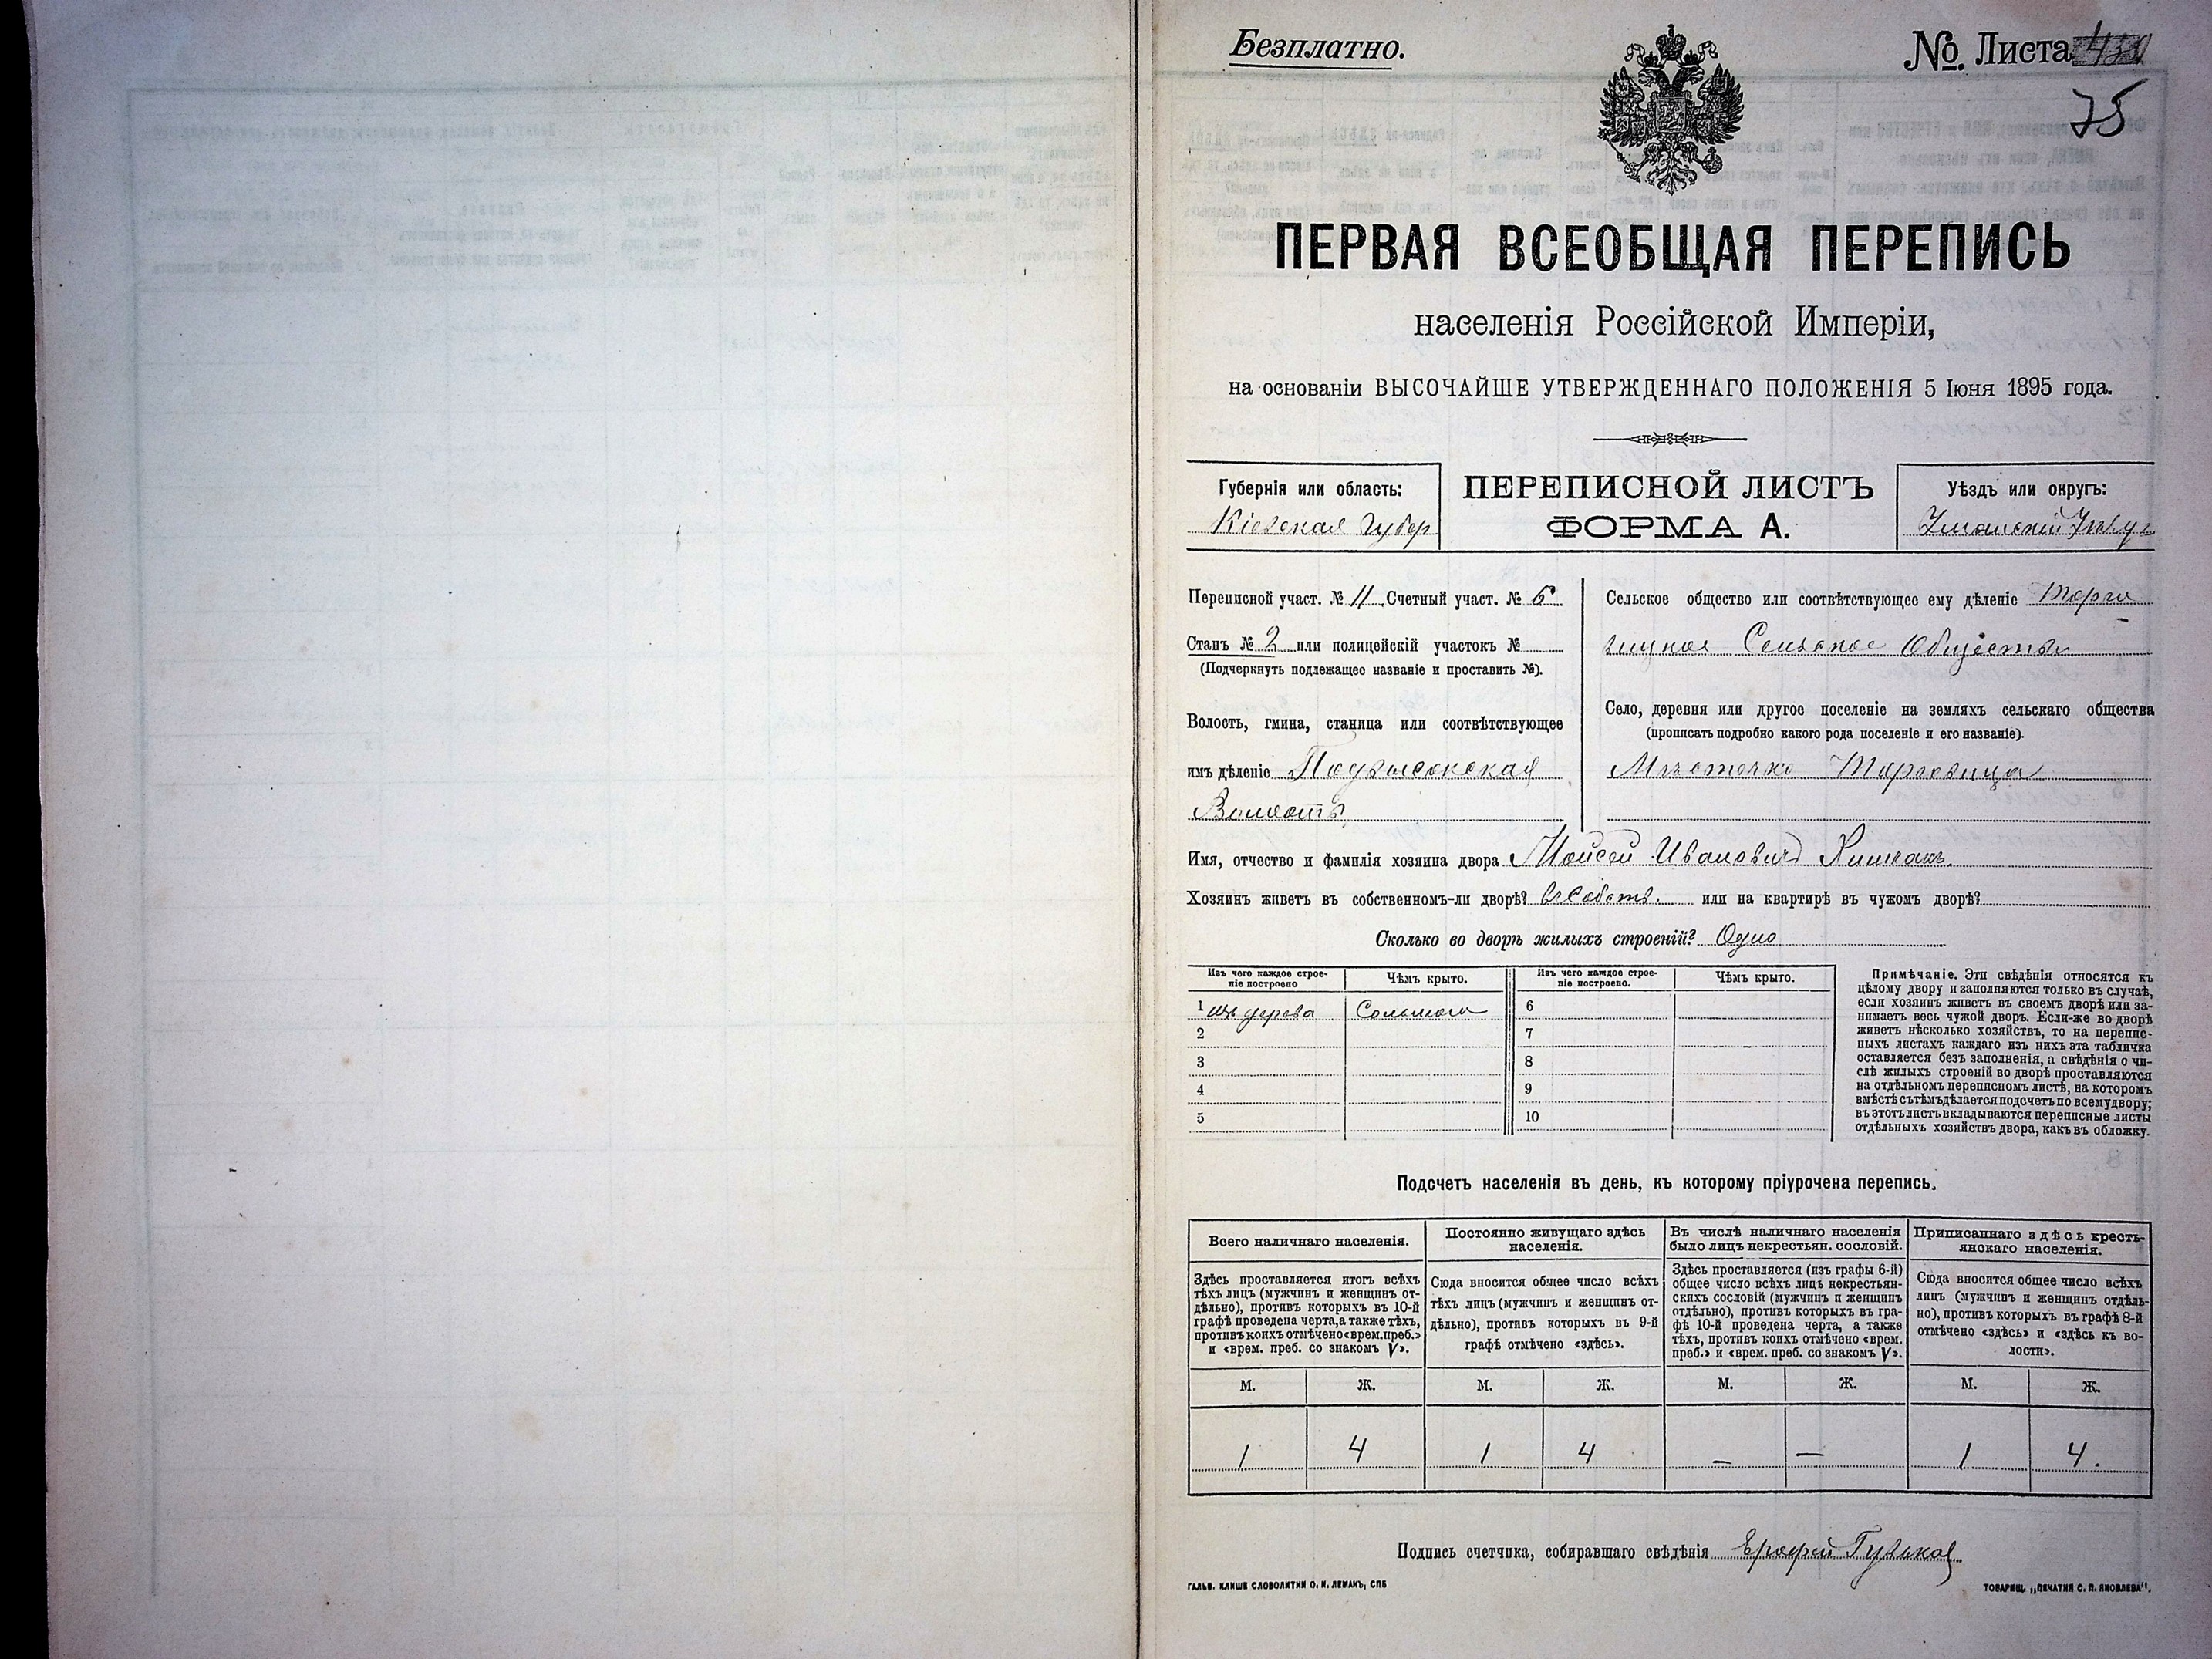 Безплатно.
№ Листа
75
ПЕРВАЯ ВСЕОБЩАЯ ПЕРЕПИСЬ
населенія Россійской Имперіи,
на основаніи ВЫСОЧАЙШЕ УТВЕРЖДЕННАГО ПОЛОЖЕНІЯ 5 Іюня 1895 года.
Губернія или область:
Кіевская Губер
ПЕРЕПИСНОЙ ЛИСТЪ
ФОРМА А.
Уѣздъ или округъ:
Уманскій
Переписной участ. № 11 Счетный участ. № 6
Станъ № 2 или полицейскій участокъ №
(Подчеркнуть подлежащее названіе и проставить №).
Волость, гмина, станица или соотвѣтствующее
имъ дѣленіе Подвысокская
Волость
Сельское общество или соотвѣтствующее ему дѣленіе Торго
вицкое Сельское Общество
Село, деревня или другое поселеніе на земляхъ сельскаго общества
(прописать подробно какого рода поселеніе и его названіе).
Мѣстечко Торговица
Имя, отчество и фамилія хозяина двора Мойсей Ивановичъ
Хозяинъ живетъ въ собственномъ-ли дворѣ? въ Собств. или на квартирѣ въ чужомъ дворѣ?
Сколько во дворѣ жилыхъ строеній? Одно
Изъ чего каждое строе-
ніе построено
Чѣмъ крыто.
Изъ чего каждое строе-
ніе построено.
Чѣмъ крыто.
1 изъ дерева Соломою 6
2 7
3 8
4 9
5 10
Примѣчаніе. Эти свѣдѣнія относятся къ
цѣлому двору и заполняются только въ случаѣ,
если хозяинъ живетъ въ своемъ дворѣ или за-
нимаетъ весь чужой дворъ. Если-же во дворѣ
живетъ нѣсколько хозяйствъ, то на перепис-
ныхъ листахъ каждаго изъ нихъ эта табличка
оставляется безъ заполненія, а свѣдѣнія о чи-
слѣ жилыхъ строеній во дворѣ проставляются
на отдѣльномъ переписномъ листѣ, на которомъ
вмѣстѣ съ тѣмъ дѣлается подсчетъ по всему двору;
въ этотъ листъ вкладываются переписные листы
отдѣльныхъ хозяйствъ двора, какъ въ обложку.
Подсчетъ населенія въ день, къ которому пріурочена перепись.
Всего наличнаго населенія.
Постоянно живущаго здѣсь
населенія.
Въ числѣ наличнаго населенія
было лицъ некрестьян. сословій.
Приписаннаго здѣсь кресть-
янскаго населенія.
Здѣсь проставляется итогъ всѣхъ
тѣхъ лицъ (мужчинъ и женщинъ от-
дѣльно), противъ которыхъ въ 10-й
графѣ проведена черта, а также тѣхъ,
противъ коихъ отмѣчено «врем. преб.»
и «врем. преб. со знакомъ V».
Сюда вносится общее число всѣхъ
тѣхъ лицъ (мужчинъ и женщинъ от-
дѣльно), противъ которыхъ въ 9-й
графѣ отмѣчено «здѣсь».
Здѣсь проставляется (изъ графы 6-й)
общее число всѣхъ лицъ некрестьян-
скихъ сословій (мужчинъ и женщинъ
отдѣльно), противъ которыхъ въ гра-
фѣ 10-й проведена черта, а также
тѣхъ, противъ коихъ отмѣчено «врем.
преб.» и «врем. преб. со знакомъ V».
Сюда вносится общее число всѣхъ
лицъ (мужчинъ и женщинъ отдѣль-
но), противъ которыхъ въ графѣ 8-й
отмѣчено «здѣсь» и «здѣсь къ во-
лости».
М. Ж. М. Ж. М. Ж. М. Ж.
1 4 1 4 — — 1 4.
Подпись счетчика, собиравшаго свѣдѣнія Ерофей
ГАЛЬВ. КЛИШЕ СЛОВОЛИТНИ О. И. ЛЕМАНЪ, СПБ
ТОВАРИЩ. „ПЕЧАТНЯ С. П. ЯКОВЛЕВА".